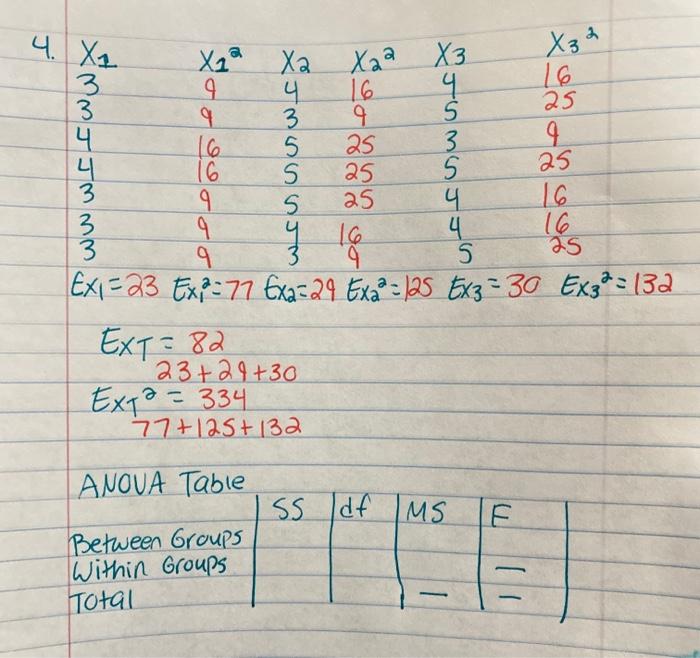 4. X1 X1² X2 X2² X3 X3²
3 9 4 16 4 16
3 9 3 9 5 25
4 16 5 25 3 9
4 16 5 25 5 25
3 9 5 25 4 16
3 9 4 16 4 16
3 9 3 9 5 25
Ex1=23 Ex1²=77 Ex2=29 Ex2²=125 Ex3=30 Ex3²=132
ExT = 82
23+29+30
ExT² = 334
77+125+132
ANOVA Table
SS df MS F
Between Groups
Within Groups —
Total — —